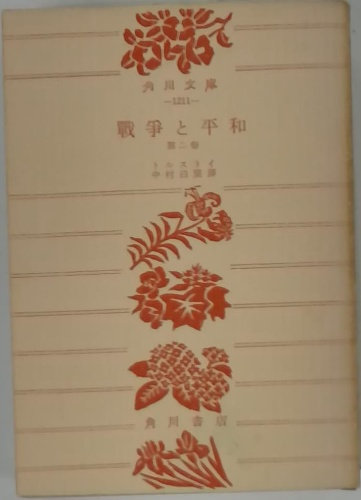 角川文庫
—1211—
戰爭と平和
第二卷
トルストイ
中村白葉譯
角川書店